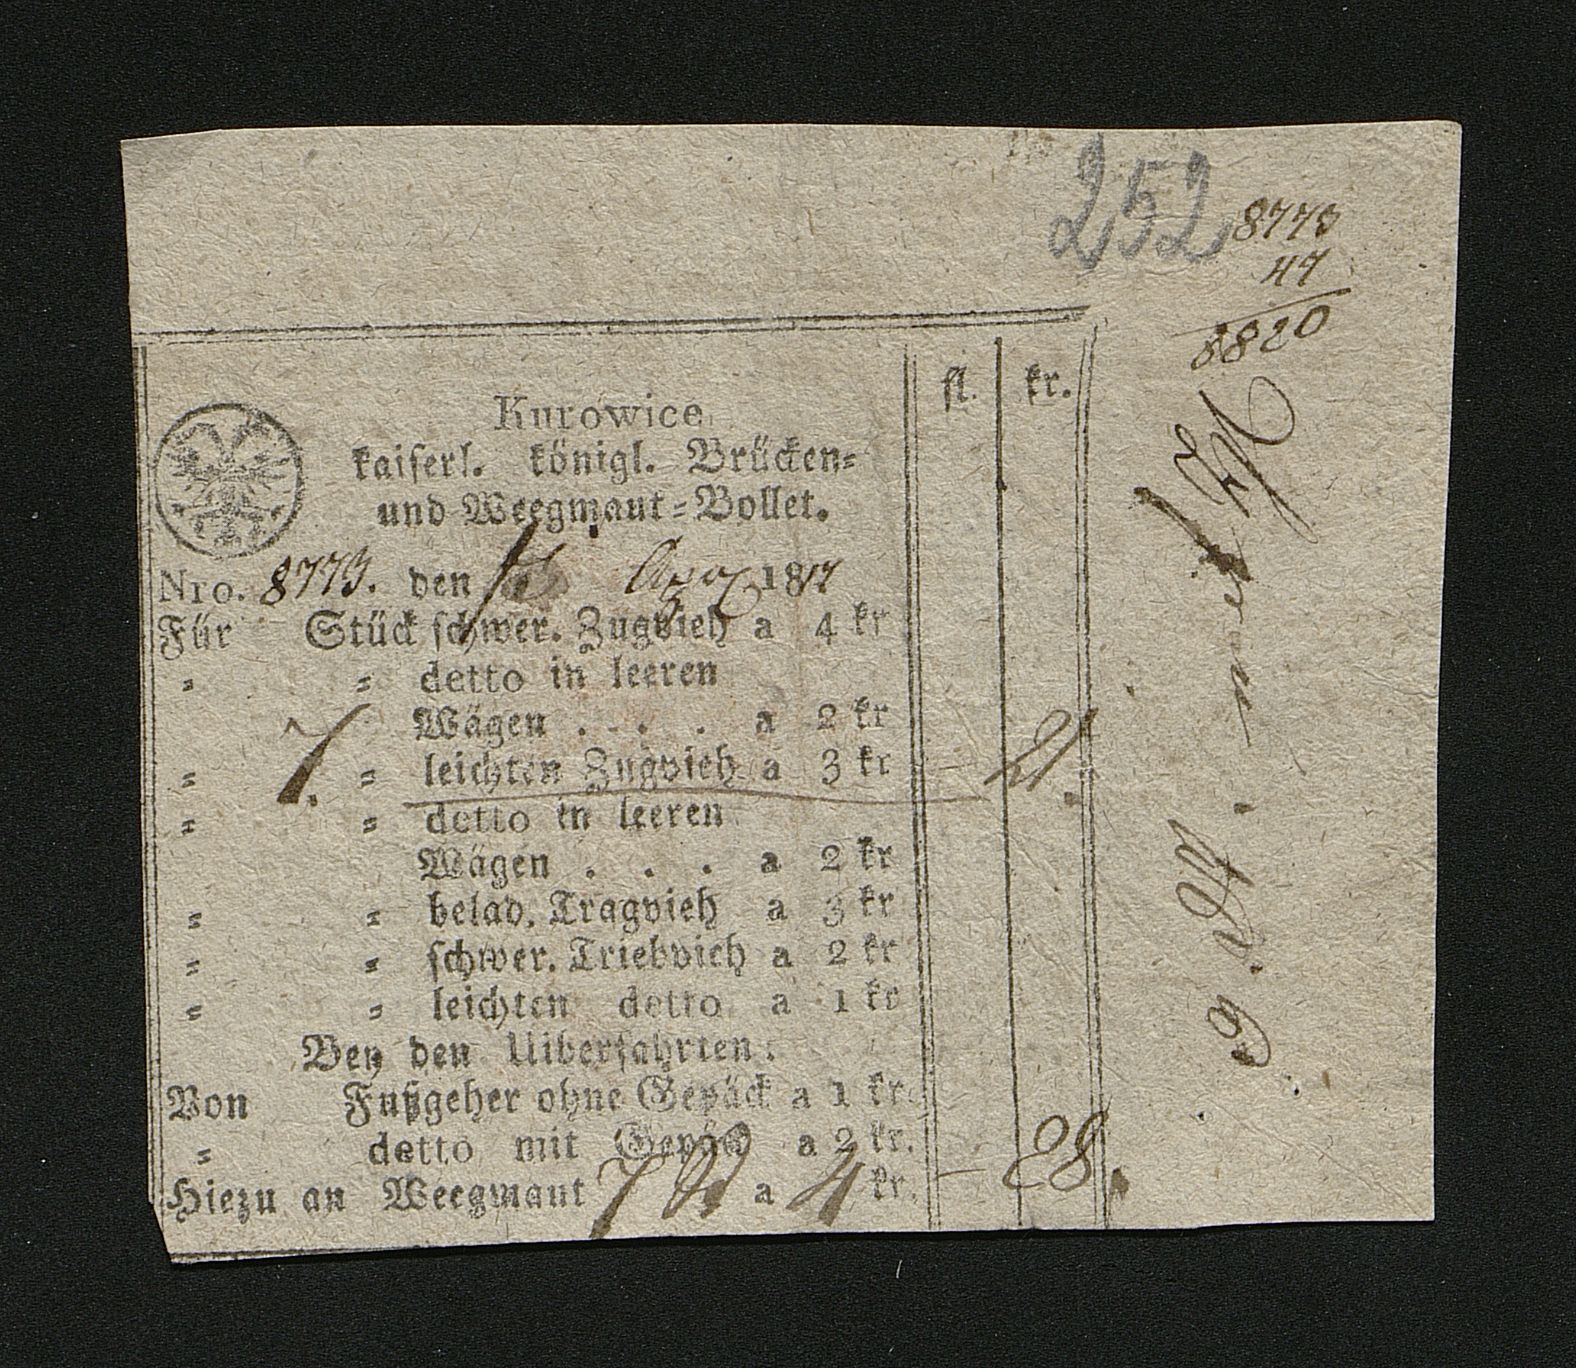 252
8773
47
8820
fl. kr.
Kurowice
kaiserl. königl. Brücken-
und Weegmaut-Bollet.
Nro. 8773. den 1817
Für Stück schwer. Zugvieh a 4 kr
„ „ detto in leeren
Wägen . . . . a 2 kr
„ 7. „ leichten Zugvieh a 3 kr — 21.
„ „ detto in leeren
Wägen . . . a 2 kr
„ „ belad. Tragvieh a 3 kr
„ „ schwer. Triebvieh a 2 kr
„ „ leichten detto a 1 kr
Bey den Uiberfahrten:
Von Fußgeher ohne Gepäck a 1 kr.
„ detto mit Gepäck a 2 kr.
Hiezu an Weegmaut 7 a 4 kr. — 28.